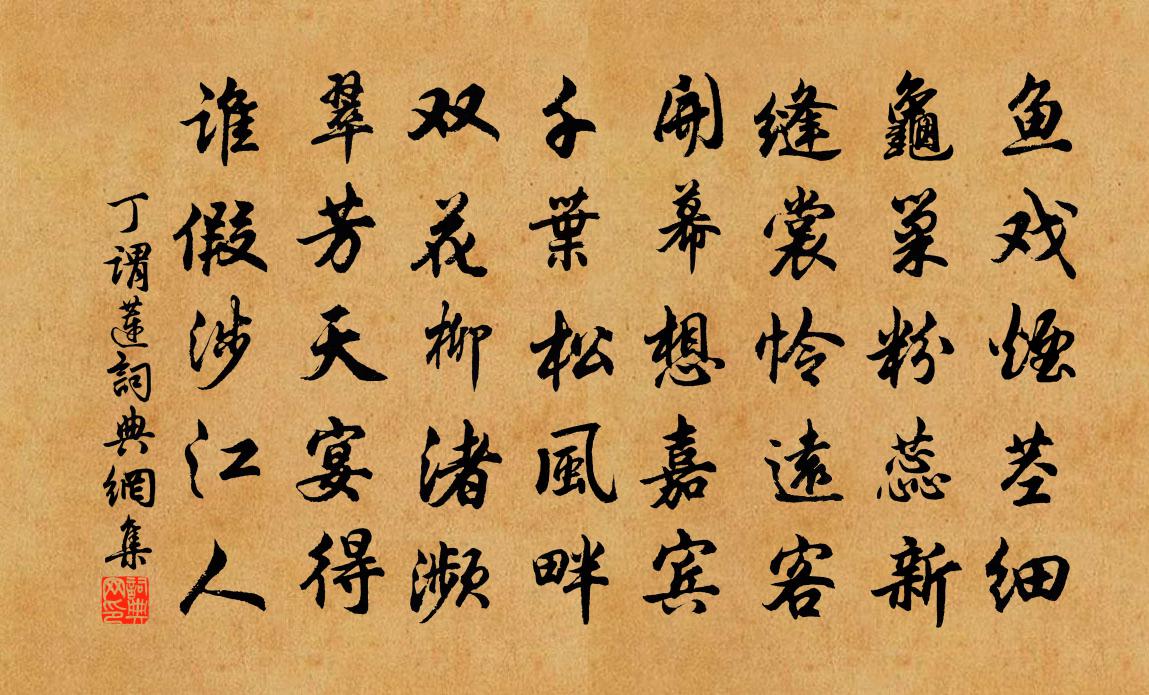 鱼戏煙茎细
龜巢粉蕊新
缝裳怜遠客
開幕想嘉宾
千葉松風畔
双花柳渚濒
翠芳天宴得
谁假涉江人
丁谓莲詞典網集
詞典网印